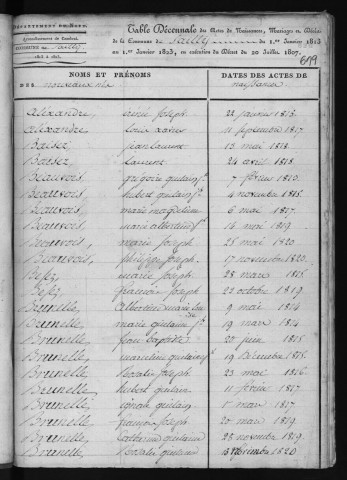 DÉPARTEMENT DU NORD.
Arrondissement de Cambrai.
Sailly
1813 à 1823.
Table Décennale des Actes de Naissances, Mariages et Décès
de la Commune de Sailly du 1.er Janvier 1813
au 1.er Janvier 1823, en exécution du Décret du 20 Juillet 1807.
699
NOMS ET PRÉNOMS
DES nouveaux nés
DATES DES ACTES DE
naissance
Alexandre, joseph 22 janvier 1813.
Alexandre, louis xavier 11 septembre 1817.
Baisez, jean laurent 13 mai 1813.
Baisez, laurent 24 avril 1818.
Beauvois, grégoire guilain 7 février 1810.
Beauvois, hubert guilain 4 novembre 1815.
Beauvois, marie magdeleine 6 mai 1817.
Beauvois, marie albertine 14 mai 1819.
Beauvois, marie joseph 25 mai 1820.
Beauvois, philippe joseph 17 novembre 1820.
marie joseph 28 mars 1815.
françois joseph 22 octobre 1819.
Brunelle, albertine marie 9 mai 1814
Brunelle, marie guilaine 19 mars 1814.
Brunelle, jean baptiste 20 juin 1815
Brunelle, guilain 19 Décembre 1815.
Brunelle, Rosalie joseph 23 mai 1816
Brunelle, hubert guilain 11 février 1817
Brunelle, guilain 1 mars 1817.
Brunelle, françois joseph 20 mars 1819.
Brunelle, Catherine guilaine 28 novembre 1819.
Brunelle, Rosalie guilaine 1820